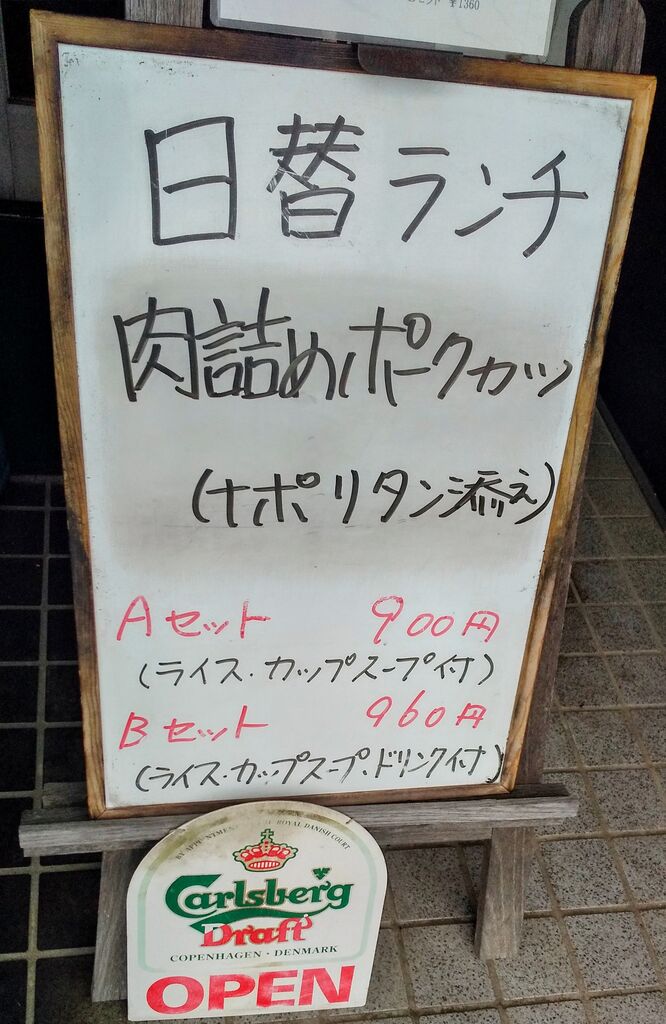 ¥1360
日替ランチ
肉詰めポークカツ
(ナポリタン添え)
Aセット 900円
(ライス・カップスープ付)
Bセット 960円
(ライス・カップスープ・ドリンク付)
BY APPOINTMENT ROYAL DANISH COURT
Carlsberg
Draft
COPENHAGEN・DENMARK
OPEN